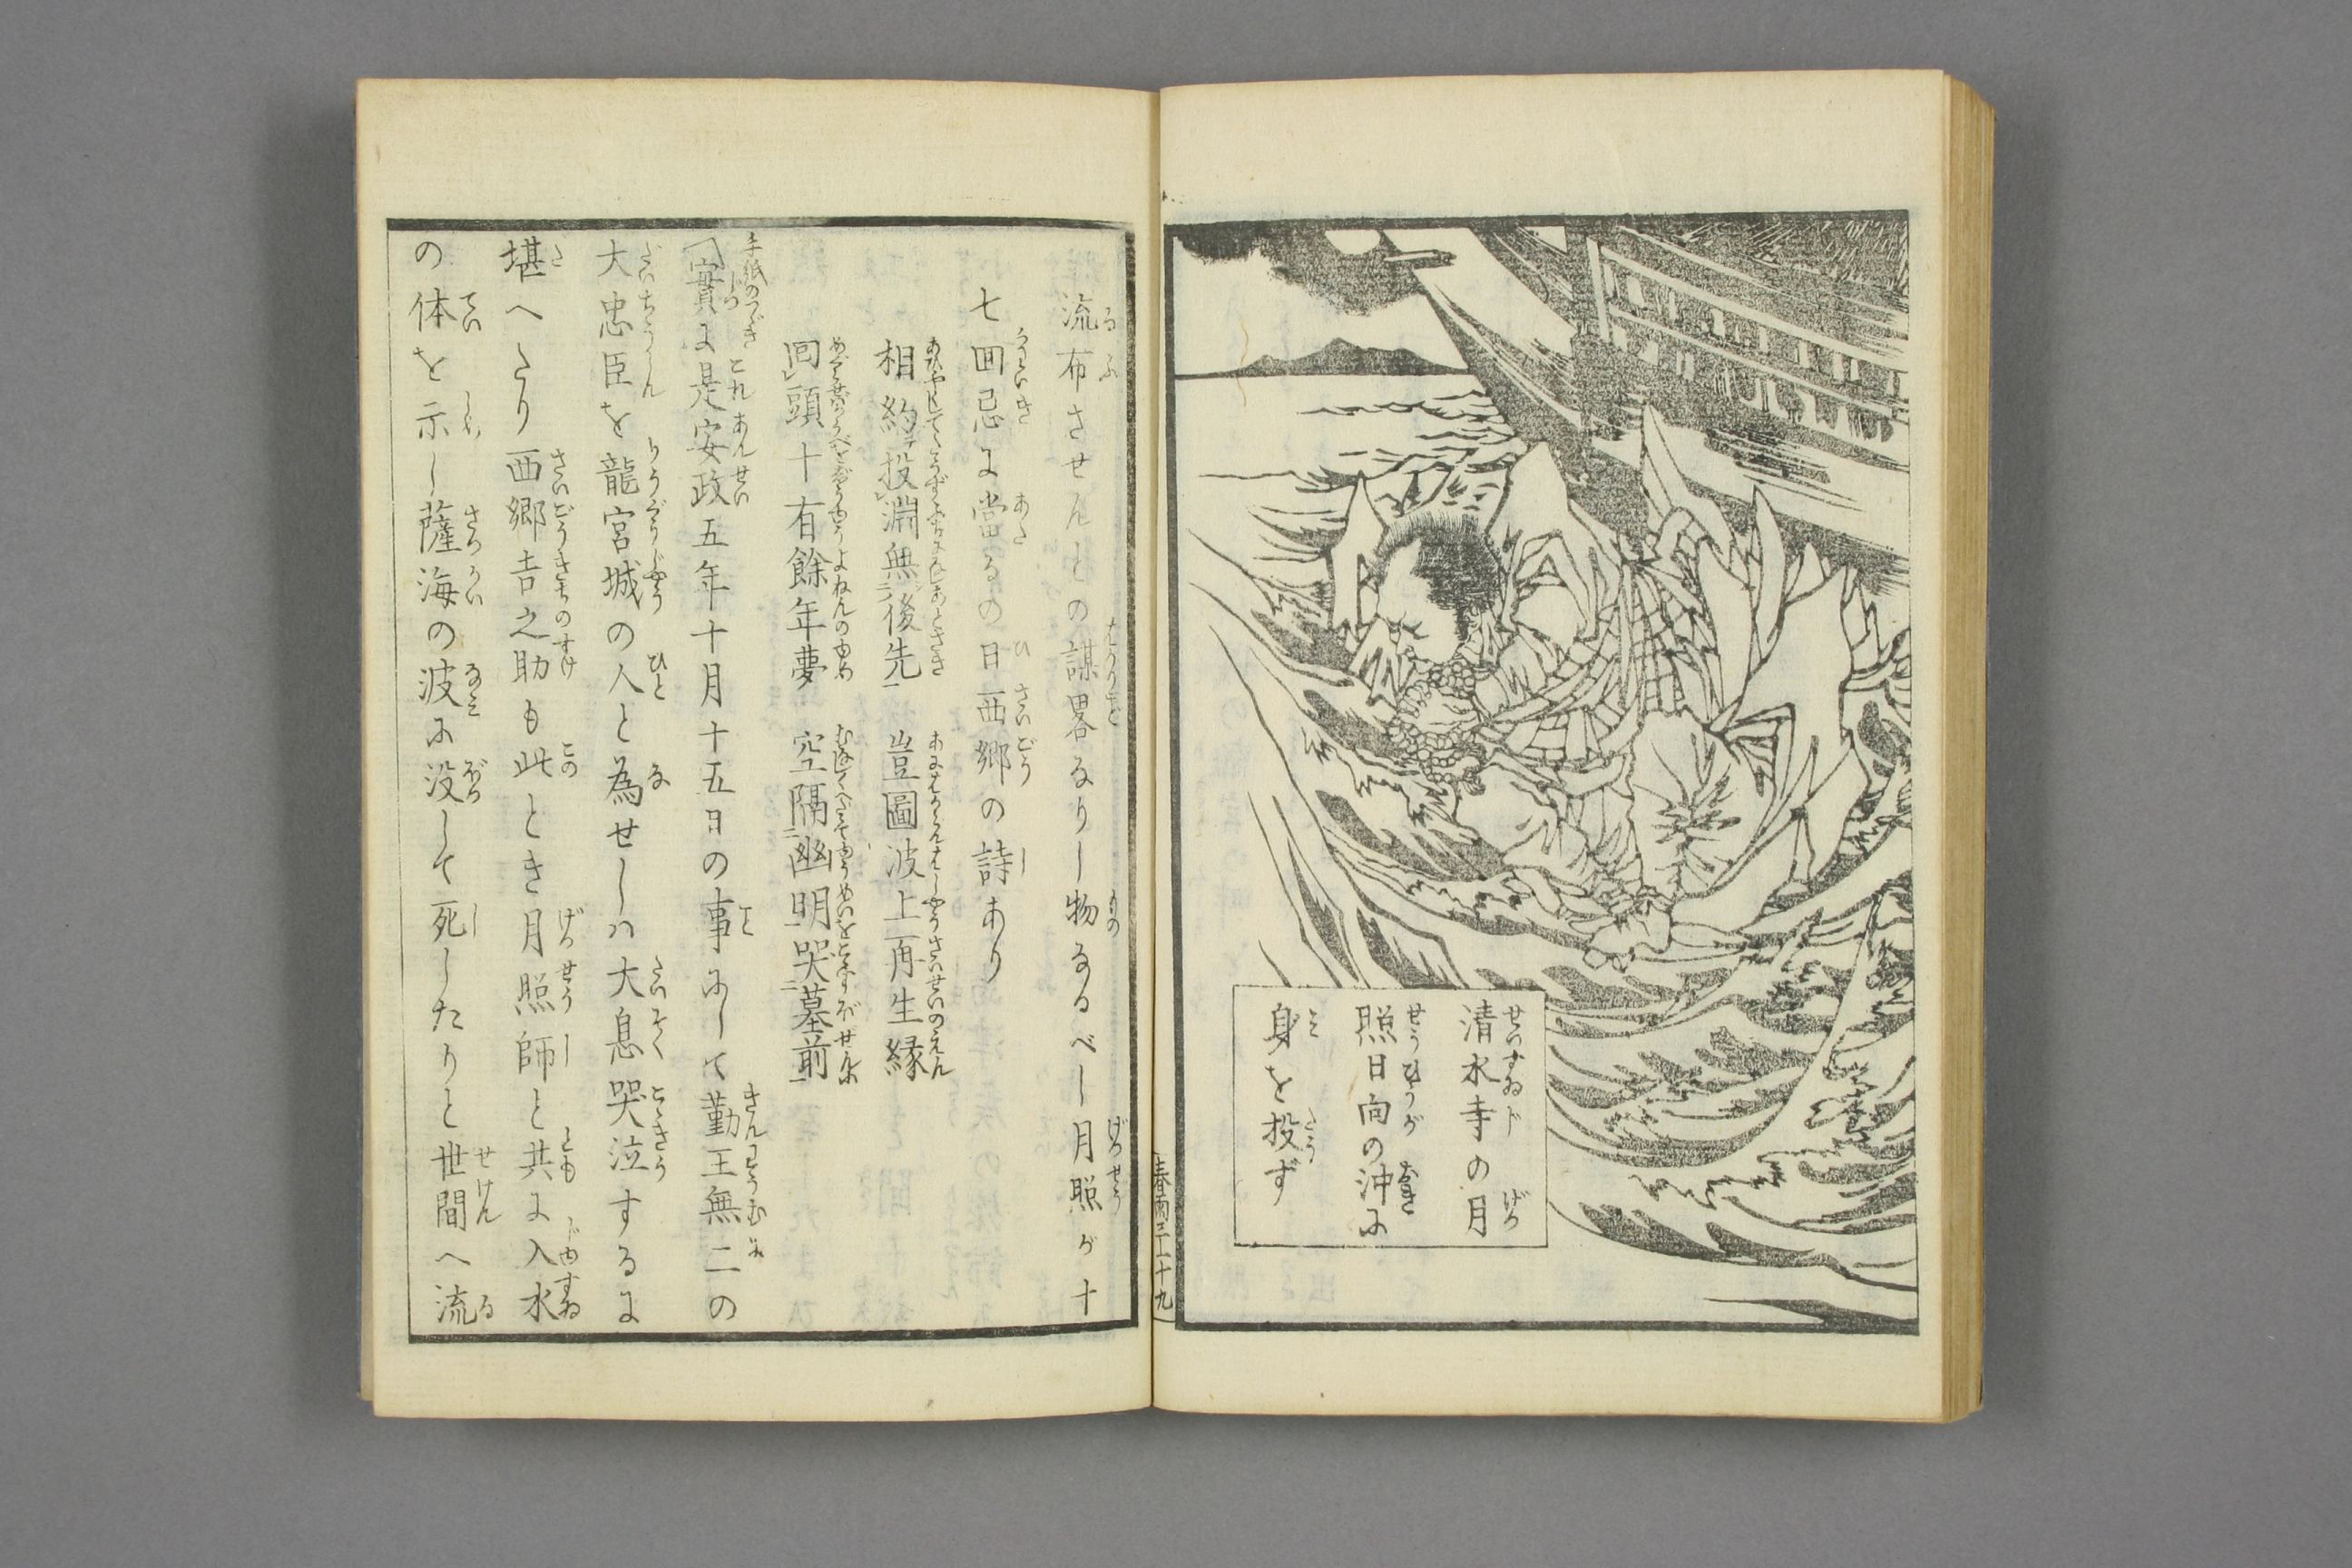 清水寺の月
照日向の沖に
身を投ず
春雨三ノ二十九
流布させんとの謀畧なりし物なるべし月照が十
七回忌に當るの日西郷の詩あり
相約投淵無後先　豈圖波上再生縁
回頭十有餘年夢　空隔幽明哭墓前
手紙のつゞき
實に是安政五年十月十五日の事にして勤王無二の
大忠臣を龍宮城の人と為せしハ大息哭泣するに
堪へたり西郷吉之助も此とき月照師と共に入水
の体を示し薩海の波に没して死したりと世間へ流